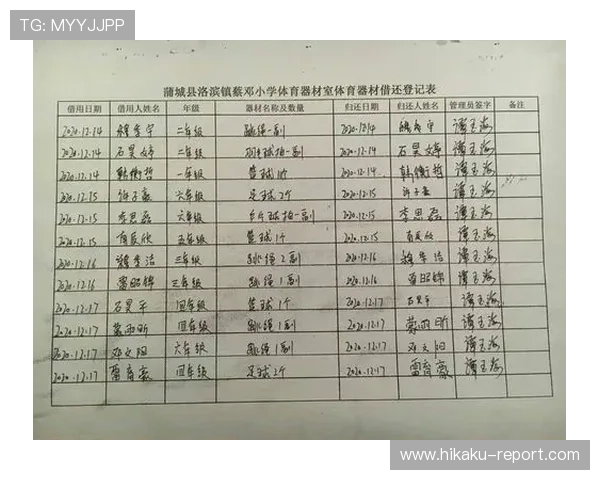 TG: MYYJJPP
蒲城县洛滨镇蔡邓小学体育器材室体育器材借还登记表
借用日期 借用人姓名 年级 器材名称及数量 归还日期 归还人姓名 管理员签字 备注
2020.12.14 二年级 跳绳一副 2020.12.14 谭玉海
2020.12.14 石昊婷 二年级 羽毛球拍一副 2020.12.14 石昊婷 谭玉海
2020.12.14 韩衡哲 一年级 篮球1个 2020.12.14 韩衡哲 谭玉海
2020.12.15 许子豪 六年级 足球2个 2020.12.15 许子豪 谭玉海
2020.12.15 李思磊 六年级 乒乓球拍一副 2020.12.15 李思磊 谭玉海
2020.12.15 五年级 篮球1个 2020.12.15 谭玉海
2020.12.16 三年级 跳绳2副 2020.12.16 谭玉海
2020.12.16 三年级 跳绳1副 2020.12.16 谭玉海
2020.12.17 石昊平 四年级 篮球1个 2020.12.17 石昊平 谭玉海
2020.12.17 蒙雨昕 四年级 跳绳1副 2020.12.17 蒙雨昕 谭玉海
2020.12.17 邓文阳 六年级 跳绳1副 2020.12.17 邓文阳 谭玉海
2020.12.17 雷育豪 四年级 足球2个 2020.12.17 雷育豪 谭玉海
www.hikaku-report.com